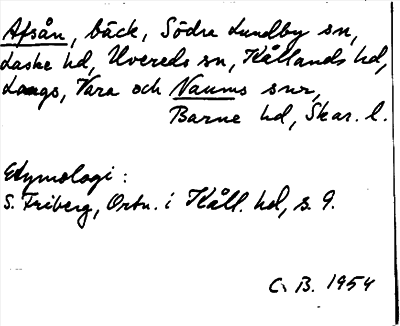 Afsån, bäck, Södra Lundby sn,
Laske hd, Uvereds sn, Kållands hd,
Längs, Vara och Naums snr,
Barne hd, Skar. l.
Etymologi:
S. Friberg, Ortn. i Kåll. hd, s. 9.
C. B. 1954